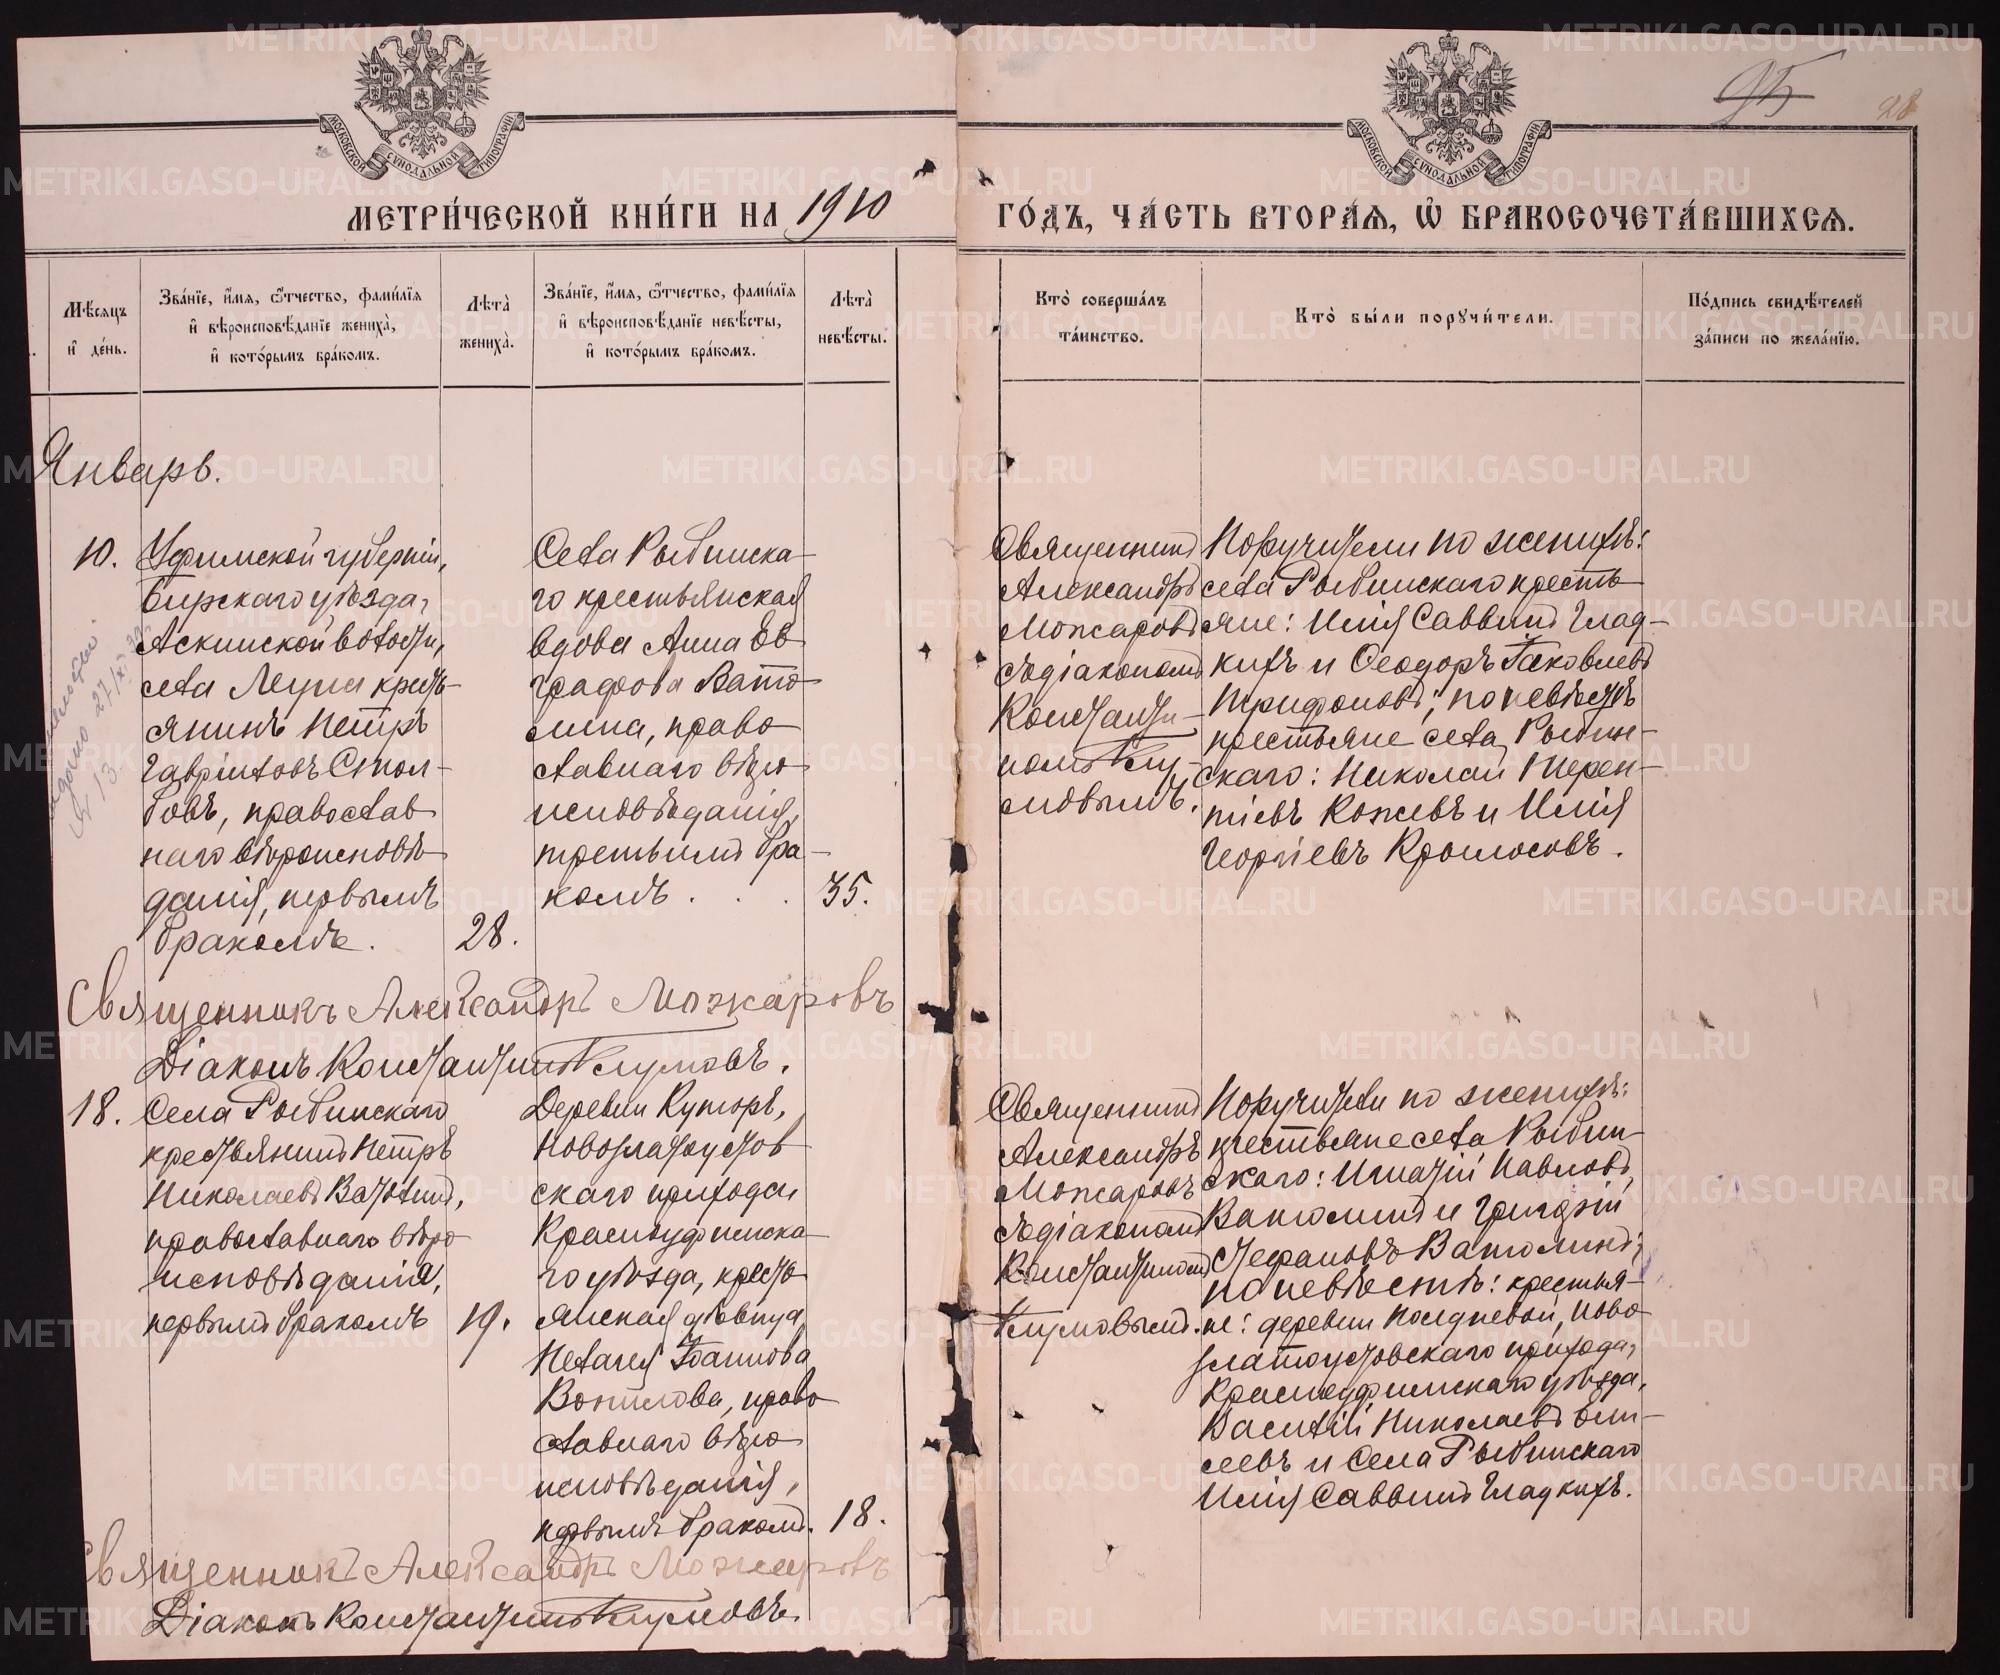 95
28
МОСКОВСКОЙ СУНОДАЛЬНОЙ ТИПОГРАФІИ
МОСКОВСКОЙ СУНОДАЛЬНОЙ ТИПОГРАФІИ
МЕТРИ́ЧЕСКОЙ КНИ́ГИ НА 1910
ГО́ДЪ, ЧА́СТЬ ВТОРА́Я, Ѽ БРАКОСОЧЕТА́ВШИХСѦ.
Мѣ́сяцъ
и҆ де́нь.
Зва́нїе, и҆́мѧ, ѻ҆́тчество, фами́лїѧ
и҆ вѣроисповѣ́данїе жениха̀,
и҆ кото́рымъ бра́комъ.
Лѣ́та
жениха̀.
Зва́нїе, и҆́мѧ, ѻ҆́тчество, фами́лїѧ
и҆ вѣроисповѣ́данїе невѣ́сты,
и҆ кото́рымъ бра́комъ.
Лѣ́та
невѣ́сты.
Кто̀ соверша́лъ
та́инство.
Кто̀ бы́ли порꙋчи́тели.
По́дпись свидѣ́телей
за́писи по жела́нїю.
Январь.
10.
Уфимской губерніи,
Бирскаго уѣзда,
Аскинской волости,
села Леуна кресть-
янинъ Петръ
Гавріиловъ Стол-
бовъ, православ
наго вѣроисповѣ-
данія, первымъ
бракомъ.
28.
Села Рыбинска-
го крестьянская
вдова Анна Ев
графова Вато-
лина, право
славнаго вѣро
исповѣданія,
третьимъ бра-
комъ . . .
35.
Священникъ
Александръ
Можаровъ
съ діакономъ
Константи-
номъ Клу-
мовымъ.
Поручители по женихѣ:
села Рыбинскаго кресть
яне: Илія Саввинъ Глад-
кихъ и Ѳеодоръ Іаковлевъ
Трифоновъ; по невѣстѣ
крестьяне села Рыбин-
скаго: Николай Терен-
тіевъ Кожевъ и Илія
Георгіевъ Кромосовъ.
Священникъ Александръ Можаровъ
Діаконъ Константинъ Клумовъ.
18.
Села Рыбинскаго
крестьянинъ Петръ
Николаевъ Ватолинъ,
православнаго вѣро
исповѣданія,
первымъ бракомъ
19.
Деревни Куторъ,
Новозлатоустов
скаго прихода,
Красноуфимска-
го уѣзда, кресть
янская дѣвица,
Пелагея Іоаннова
Вопилова, право
славнаго вѣро
исповѣданія,
первымъ бракомъ.
18.
Священникъ
Александръ
Можаровъ
съ діакономъ
Константиномъ
Клумовымъ.
Поручители по женихѣ:
крестьяне села Рыбин-
скаго: Игнатій Павловъ
Ватолинъ и Григорій
Стефановъ Ватолинъ;
по невѣстѣ: крестья-
не: деревни Полдневой, Ново
златоустовскаго прихода,
Красноуфимскаго уѣзда,
Василій Николаевъ Ели-
сеевъ и Села Рыбинскаго
Илія Саввинъ Гладкихъ.
Священникъ Александръ Можаровъ
Діаконъ Константинъ Клумовъ.